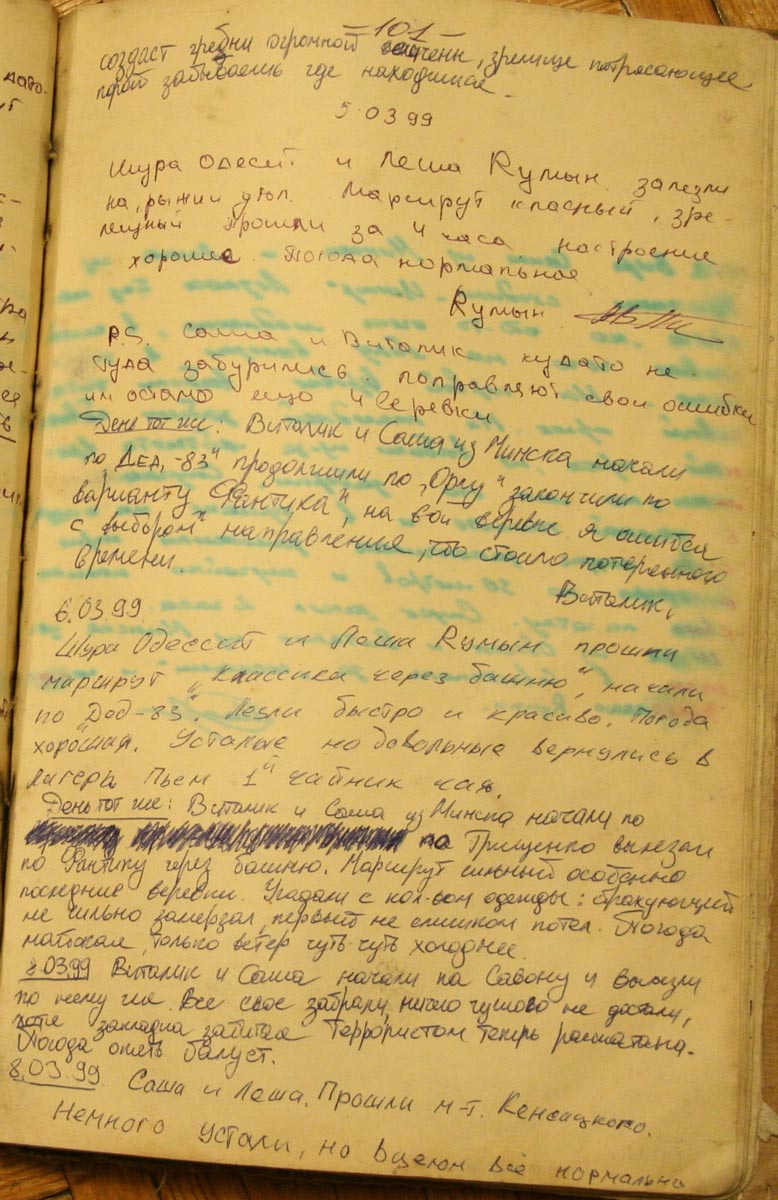 -101-
создаст гребни огромной зрелище потрясающее
порой забываешь где находишься.
5.03.99
Шура Одесит и Леша Румын залезли
на рыжий угол. Маршрут класный, зре-
лищный прошли за 4 часа настроение
хорошее. Погода нормальное
Румын
P.S. Саша и Виталик кудато не
туда забурились. поправляют свои ошибки
им остало ещо 4 веревки
День тот же: Виталик и Саша из Минска начали
по "Дед-83" продолжили по "Орлу" закончили по
варианту "Фантика", на 8ой веревке я ошибся
с "выбором" направления, что стоило потерянного
времени.
Виталик,
6.03.99.
Шура Одессит и Леша Румын прошли
маршрут "Классика через башню", начали
по "Дед-83". Лезли быстро и красиво. Погода
хорошая. Усталые но довольные вернулись в
лагерь пьем 1й чайник чая.
День тот же: Виталик и Саша из Минска начали по
Грищенко вылезли
по Фантику через башню. Маршрут сильный особенно
последние веревки. Угадали с кол-вом одежды: страхующий
не сильно замерзал, первый не слишком потел. Погода
майская, только ветер чуть-чуть холоднее.
7.03.99 Виталик и Саша начали по Савону и вылезли
по нему же. Все свое забрали, ничего чужого не достали,
хотя закладка забитая Террористом теперь расшатана.
Погода опять балует.
8.03.99 Саша и Леша. Прошли м-т.
Немного устали, но вцелом всё нормально